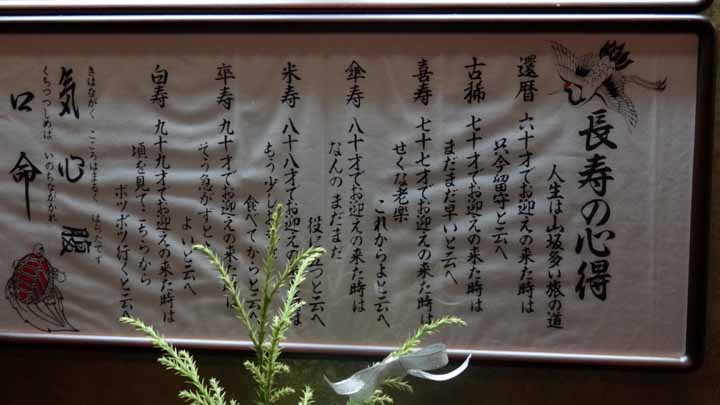 長寿の心得
人生は山坂多い旅の道
還暦 六十才でお迎えの来た時は
只今留守と云へ
古稀 七十才でお迎えの来た時は
まだまだ早いと云へ
喜寿 七十七才でお迎えの来た時は
せくな老楽
これからよと云へ
傘寿 八十才でお迎えの来た時は
なんのまだまだ
役 立つと云へ
米寿 八十八才でお迎えの は
もう少し
食べてからと云へ
卒寿 九十才でお迎えの来た時は
そう急がずと
よいと云へ
白寿 九十九才でお迎えの来た時は
頃を見てこちらから
ボツボツ行くと云へ
きはながく こころはまるく はらたてず
気 心 腹
くちつつしめば いのちながかれ
口 命